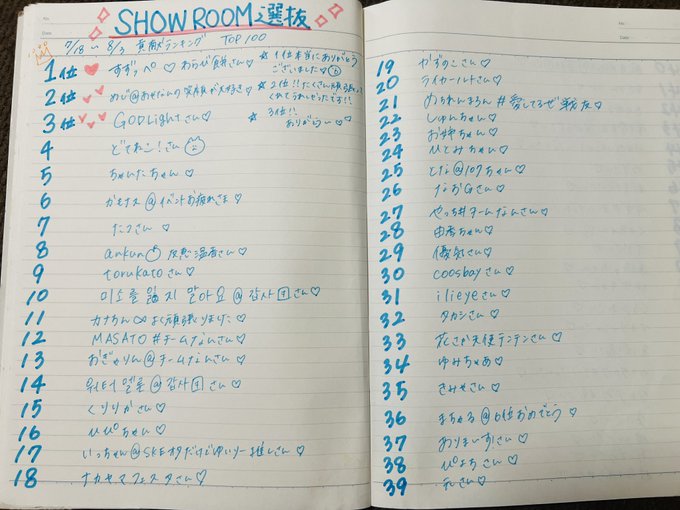 SHOWROOM選抜
7/18〜8/3 貢献ランキング TOP100
1位 すずっぺ♡わらび餅さん♡
☆1位本当にありがとう
ございました♡
2位 めじ@あせなんの笑顔が大好き♡
☆2位!!たくさん頑張って
くれてうれしかったです!!
3位 GODLightさん♡
☆3位!!
ありがとう♡
4 どてねこ!さん
5 ちゃんたちゃん♡
6 かもナス@イベントお疲れさま♡
7 たつさん♡
8 ankun 反悪温音さん♡
9 torukatoさん♡
10 미소를 잃지 말아요@감사さん♡
11 カナちん∞よく頑張りました♡
12 MASATO#チームなんさん♡
13 おぎゃりん@チームなんさん♡
14 @감사さん♡
15 くりりかさん♡
16 ぴぴちゃん♡
17 いっちゃん@SKEオタだけどゆいりー推しさん♡
18 ナカヤマフェスタさん♡
19 かずのこさん♡
20 ライカールトさん♡
21 めちれんまろん #愛してるぜ戦友♡
22 しゅんちゃん♡
23 お姉ちゃん♡
24 ひとみちゃん♡
25 とな@107ちゃん♡
26 なおGさん♡
27 やっち#チームなんさん♡
28 由香ちゃん♡
29 優気さん♡
30 coosbayさん♡
31 ilieyeさん♡
32 タカシさん♡
33 花さか天使テンテンさん♡
34 ゆみちゃあ♡
35 きみせさん♡
36 まちゃる@6位おめでとう♡
37 おりまいす!さん♡
38 ぴよちさん♡
39 元さん♡